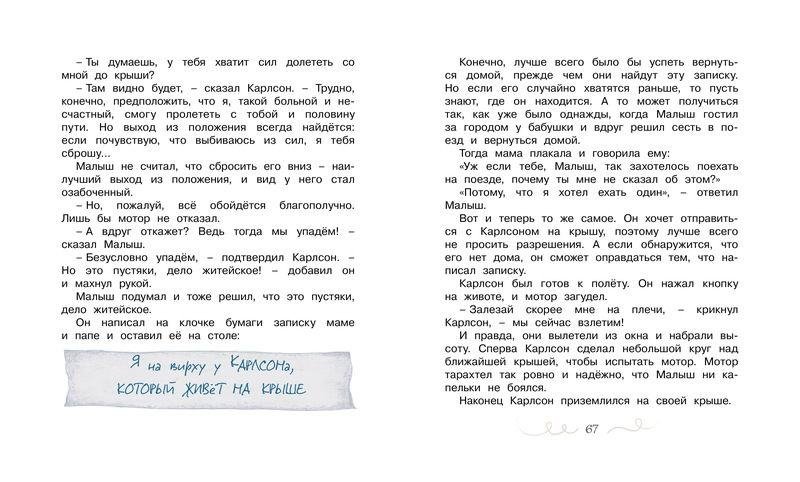 – Ты думаешь, у тебя хватит сил долететь со
мной до крыши?
– Там видно будет, – сказал Карлсон. – Трудно,
конечно, предположить, что я, такой больной и не-
счастный, смогу пролететь с тобой и половину
пути. Но выход из положения всегда найдётся:
если почувствую, что выбиваюсь из сил, я тебя
сброшу...
Малыш не считал, что сбросить его вниз – наи-
лучший выход из положения, и вид у него стал
озабоченный.
– Но, пожалуй, всё обойдётся благополучно.
Лишь бы мотор не отказал.
– А вдруг откажет? Ведь тогда мы упадём! –
сказал Малыш.
– Безусловно упадём, – подтвердил Карлсон. –
Но это пустяки, дело житейское! – добавил он
и махнул рукой.
Малыш подумал и тоже решил, что это пустяки,
дело житейское.
Он написал на клочке бумаги записку маме
и папе и оставил её на столе:
Я на вирху у КАРЛСОНа,
КОТОРЫЙ ЖИВЁТ НА КРЫШЕ
Конечно, лучше всего было бы успеть вернуть-
ся домой, прежде чем они найдут эту записку.
Но если его случайно хватятся раньше, то пусть
знают, где он находится. А то может получиться
так, как уже было однажды, когда Малыш гостил
за городом у бабушки и вдруг решил сесть в по-
езд и вернуться домой.
Тогда мама плакала и говорила ему:
«Уж если тебе, Малыш, так захотелось поехать
на поезде, почему ты мне не сказал об этом?»
«Потому, что я хотел ехать один», – ответил
Малыш.
Вот и теперь то же самое. Он хочет отправить-
ся с Карлсоном на крышу, поэтому лучше всего
не просить разрешения. А если обнаружится, что
его нет дома, он сможет оправдаться тем, что на-
писал записку.
Карлсон был готов к полёту. Он нажал кнопку
на животе, и мотор загудел.
– Залезай скорее мне на плечи, – крикнул
Карлсон, – мы сейчас взлетим!
И правда, они вылетели из окна и набрали вы-
соту. Сперва Карлсон сделал небольшой круг над
ближайшей крышей, чтобы испытать мотор. Мотор
тарахтел так ровно и надёжно, что Малыш ни ка-
пельки не боялся.
Наконец Карлсон приземлился на своей крыше.
67